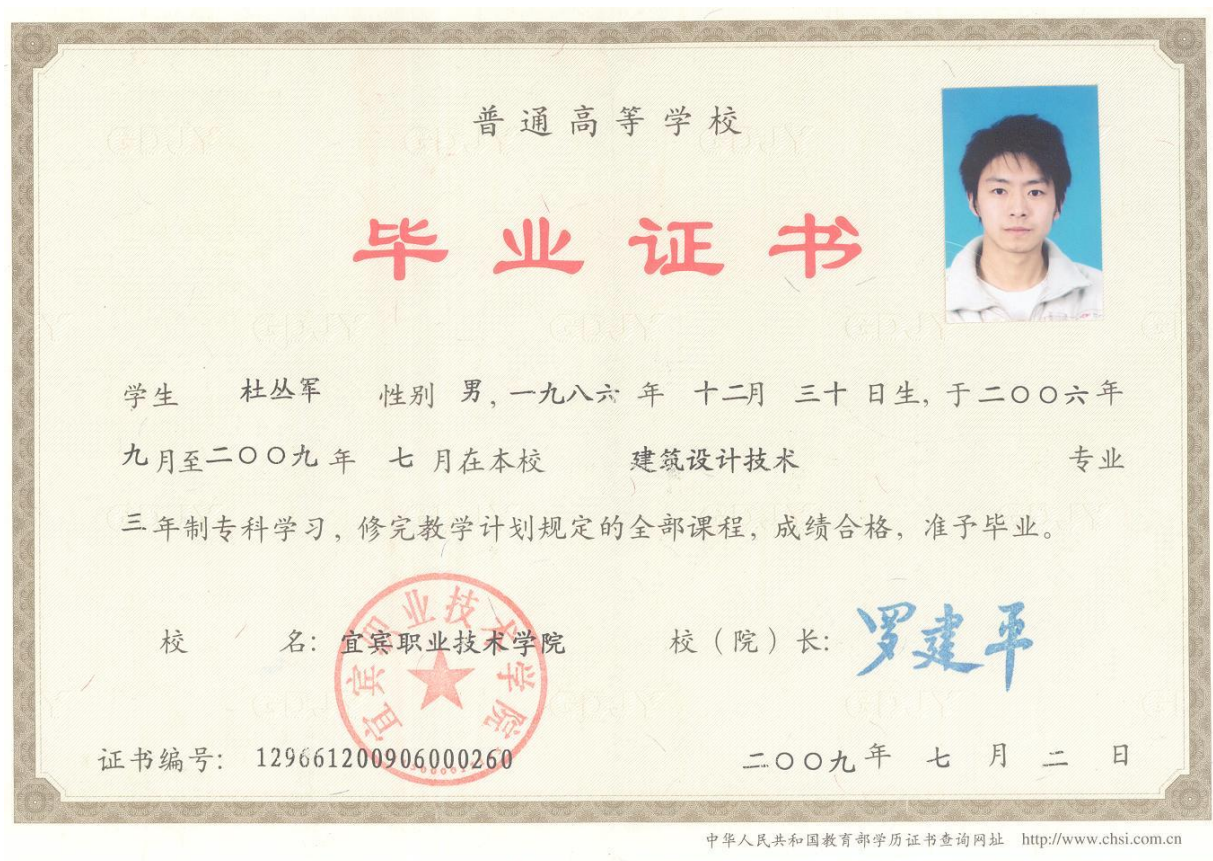 普通高等学校
毕业证书
学生 杜丛军 性别 男，一九八六 年 十二月 三十 日生，于二〇〇六年
九月至二〇〇九年 七 月在本校 建筑设计技术 专业
三年制专科学习，修完教学计划规定的全部课程，成绩合格，准予毕业。
校 名：宜宾职业技术学院 校（院）长：罗建平
宜宾职业技术学院
证书编号：129661200906000260 二〇〇九年 七 月 二 日
中华人民共和国教育部学历证书查询网址 http://www.chsi.com.cn